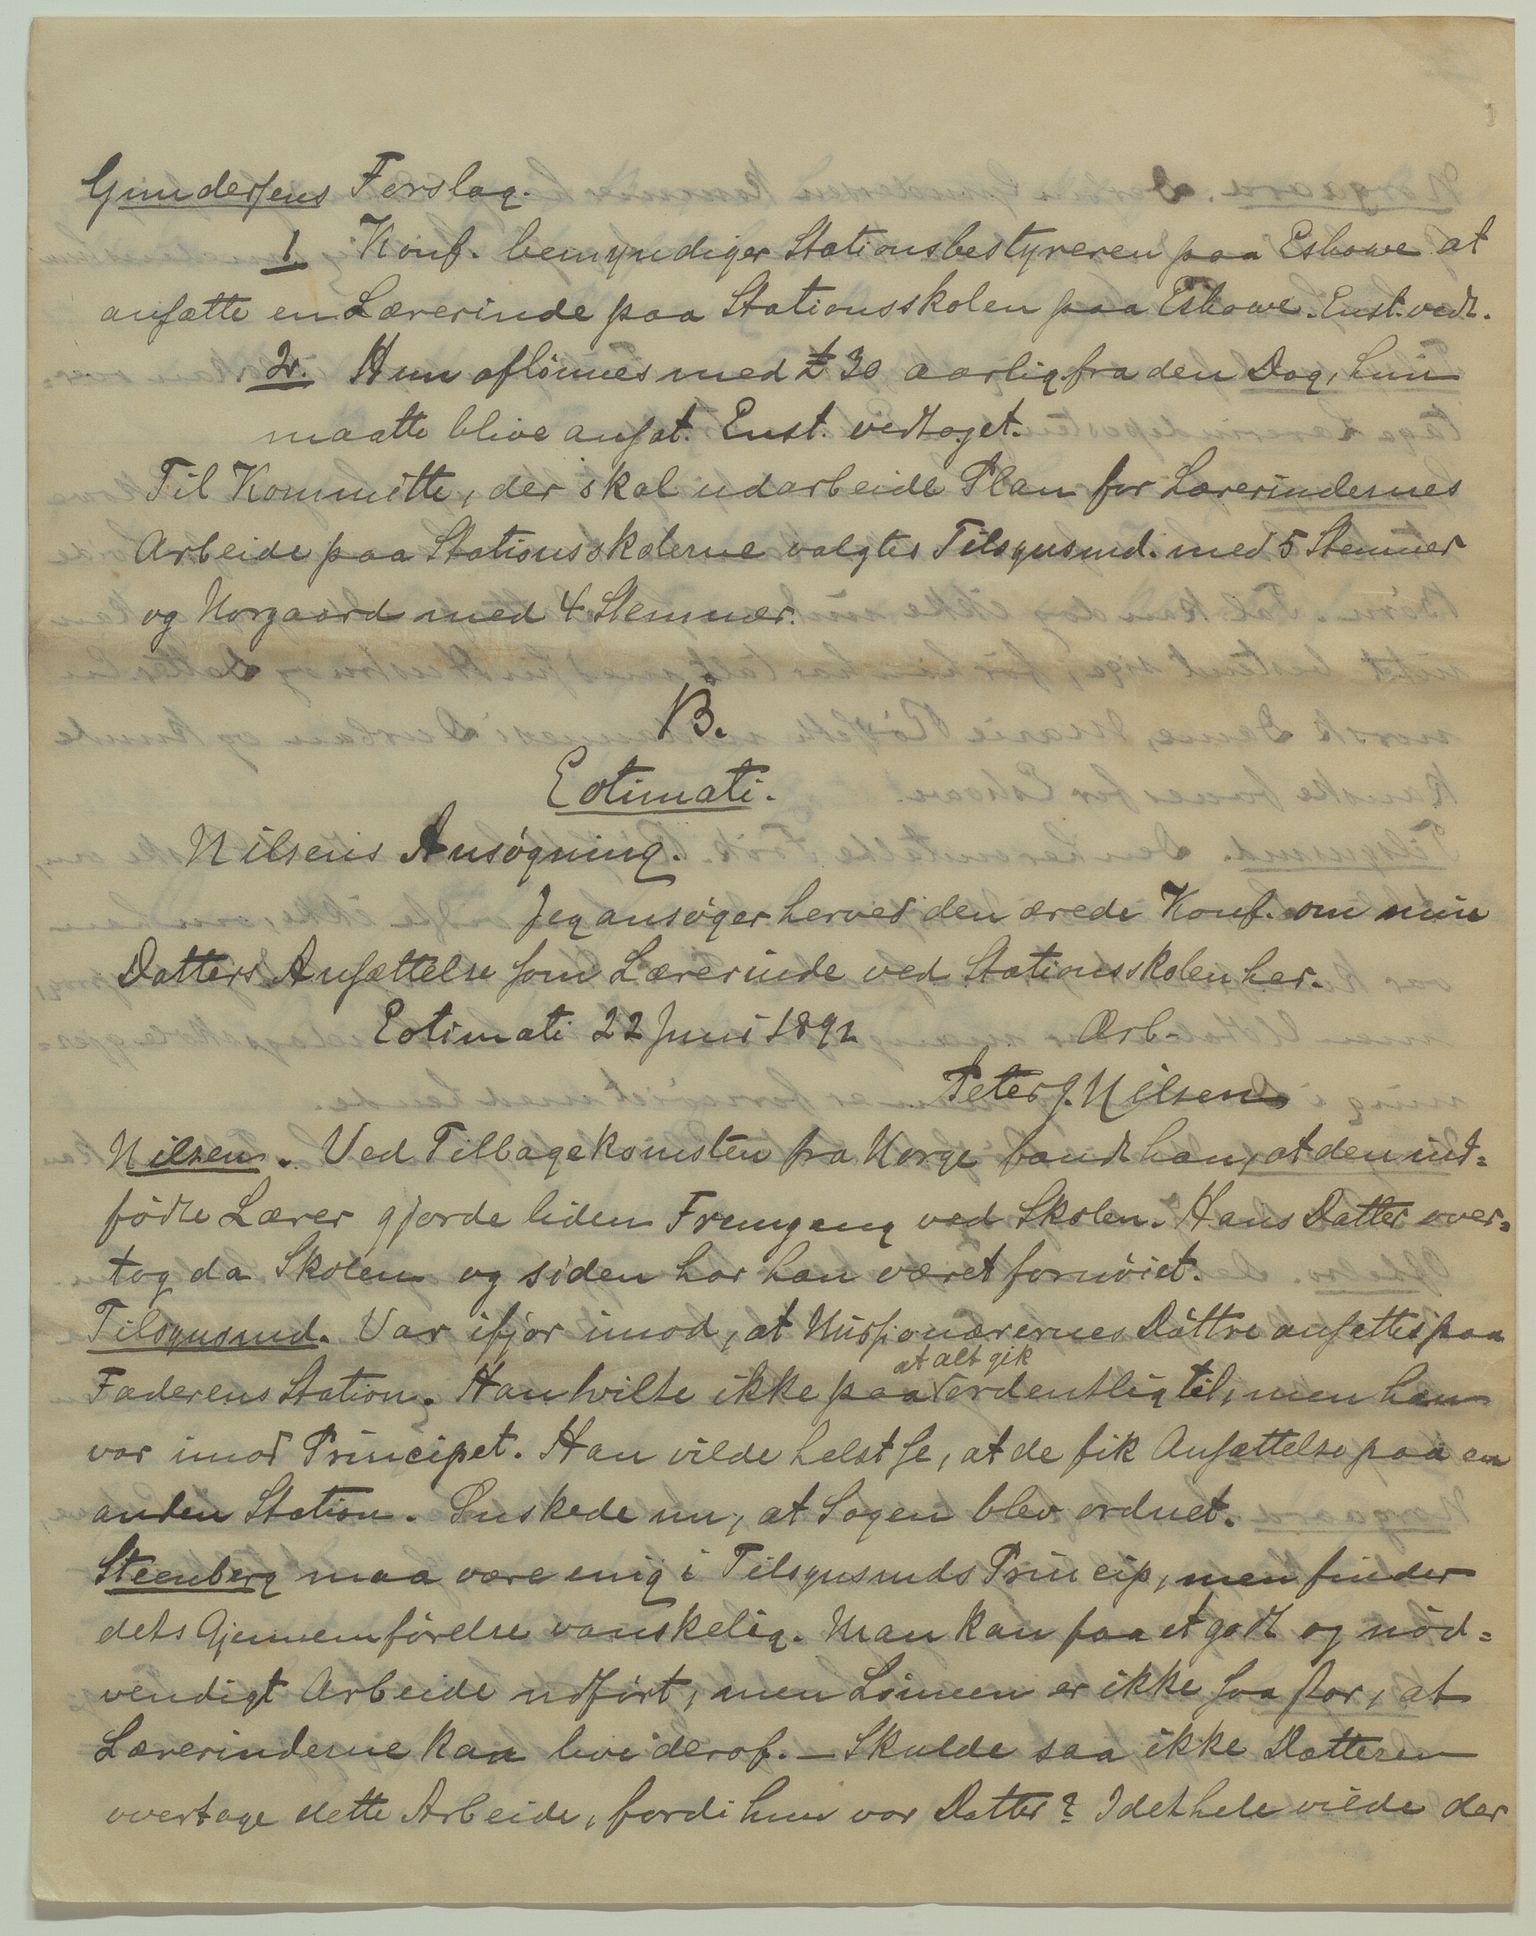 Gundersens Forslag.
1. Konf. bemyndiger Stationsbestyreren paa Eshowe at
ansætte en Lærerinde paa Stationsskolen paa Eshowe. Enst. vedt.
2. Hun aflönnes med £ 30 aarlig fra den Dag, hun
maatte blive ansat. Enst. vedtaget.
Til Kommitte, der skal udarbeide Plan for Lærerindernes
Arbeide paa Stationsskolerne valgtes Tilsynsmd. med 5 Stemmer
og Norgaard med 4 Stemmer.
B.
Eotimati.
Nilsens Ansøgning.
Jeg ansøger herved den ærede Konf. om min
Datters Ansættelse som Lærerinde ved Stationsskolen her.
Eotimati 22 Juni 1892 Ærb.
Peter J. Nilsen
Nilsen. Ved Tilbagekomsten fra Norge fandt han, at den ind=
fødte Lærer gjorde liden Fremgang ved Skolen. Hans Datter over=
tog da Skolen og siden har han været fornöiet.
Tilsynsmd. Var ifjor imod, at Missionærernes Döttre ansættes paa
Faderens Station. Han tvilte ikke paa at alt gik ordentlig til, men han
var imod Principet. Han vilde helst se, at de fik Ansættelse paa en
anden Station. Ønskede nu, at Sagen blev ordnet.
Steenberg maa være enig i Tilsynsmds Princip, men finder
dets Gjennemförelse vanskelig. Man kan faa et godt og nöd=
vendigt Arbeide udfört, men Lönnen er ikke saa stor, at
Lærerinderne kan leve deraf. — Skulde saa ikke Datteren
overtage dette Arbeide, fordi hun var Datter? I det hele vilde der